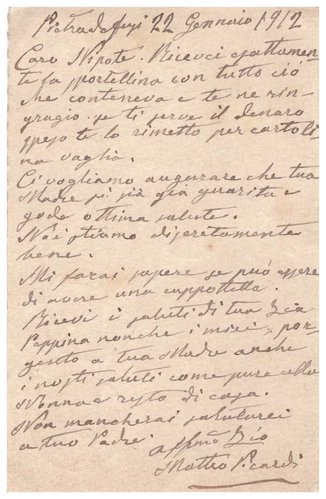 Pietradefusi 22 Gennaio 1912
Caro Nipote. Ricevei esattamen-
te la sportellina con tutto ciò
che conteneva e te ne rin-
grazio. se ti serve il denaro
speso te lo rimetto per cartoli
na vaglia.
Ci vogliamo augurare che tua
Madre si sia già guarita e
goda ottima salute.
Noi stiamo discretamente
bene.
Mi farai sapere se può essere
di avere una cappottella.
Ricevi i saluti di tua Zia
Peppina nonche i miei = por-
gerai a tua Madre anche
i nostri saluti come pure alla
Nonna e resto di casa.
Non mancherai salutarci
a tuo Padre.
affmo Zio
Matteo Picardi